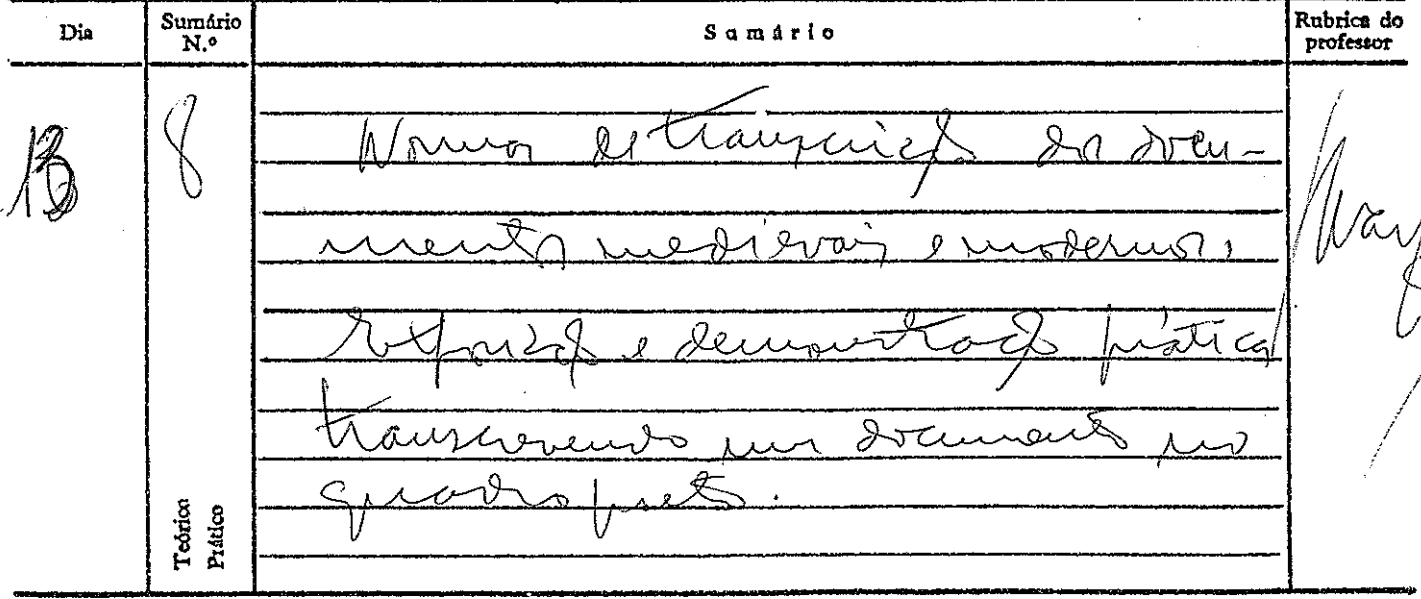 Dia
Sumário
N.º
Sumário
Rubrica do
professor
13
8
Normas de transcrição dos docu-
mentos medievais e modernos.
Exposição e demonstração prática
transcrevendo um documento no
quadro preto.
Teórico
Prático